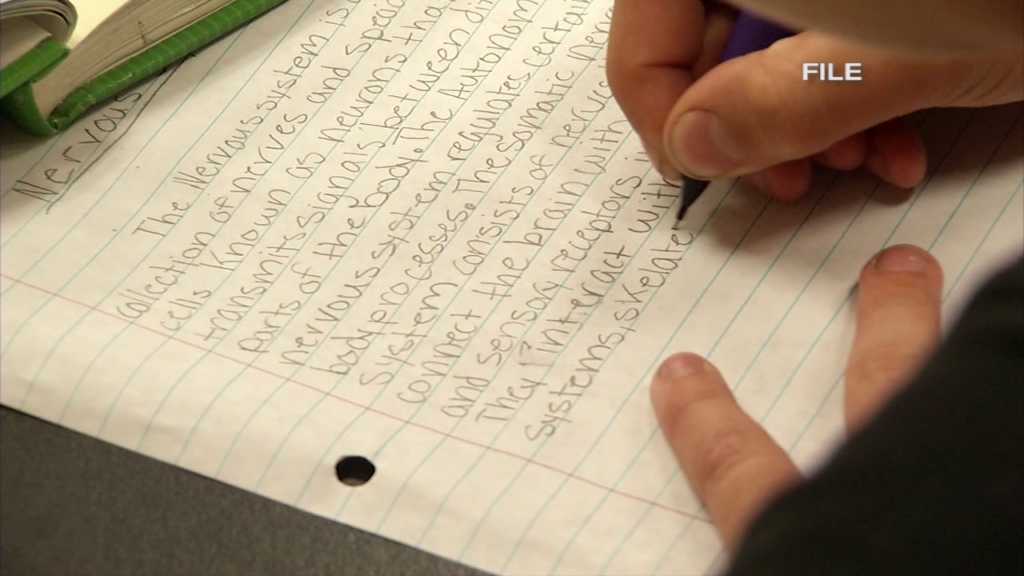 FILE
Nervous
The Nervous system is
collection of nerves and spec
cells known as neurons tha
transmits signals between di
parts of the body. The Autonom
nervous system regulates certai
body processes. The Somatic
system consists of nerve
connect the brain with
and sensory receptors i
They'll interact with
systems, skelate